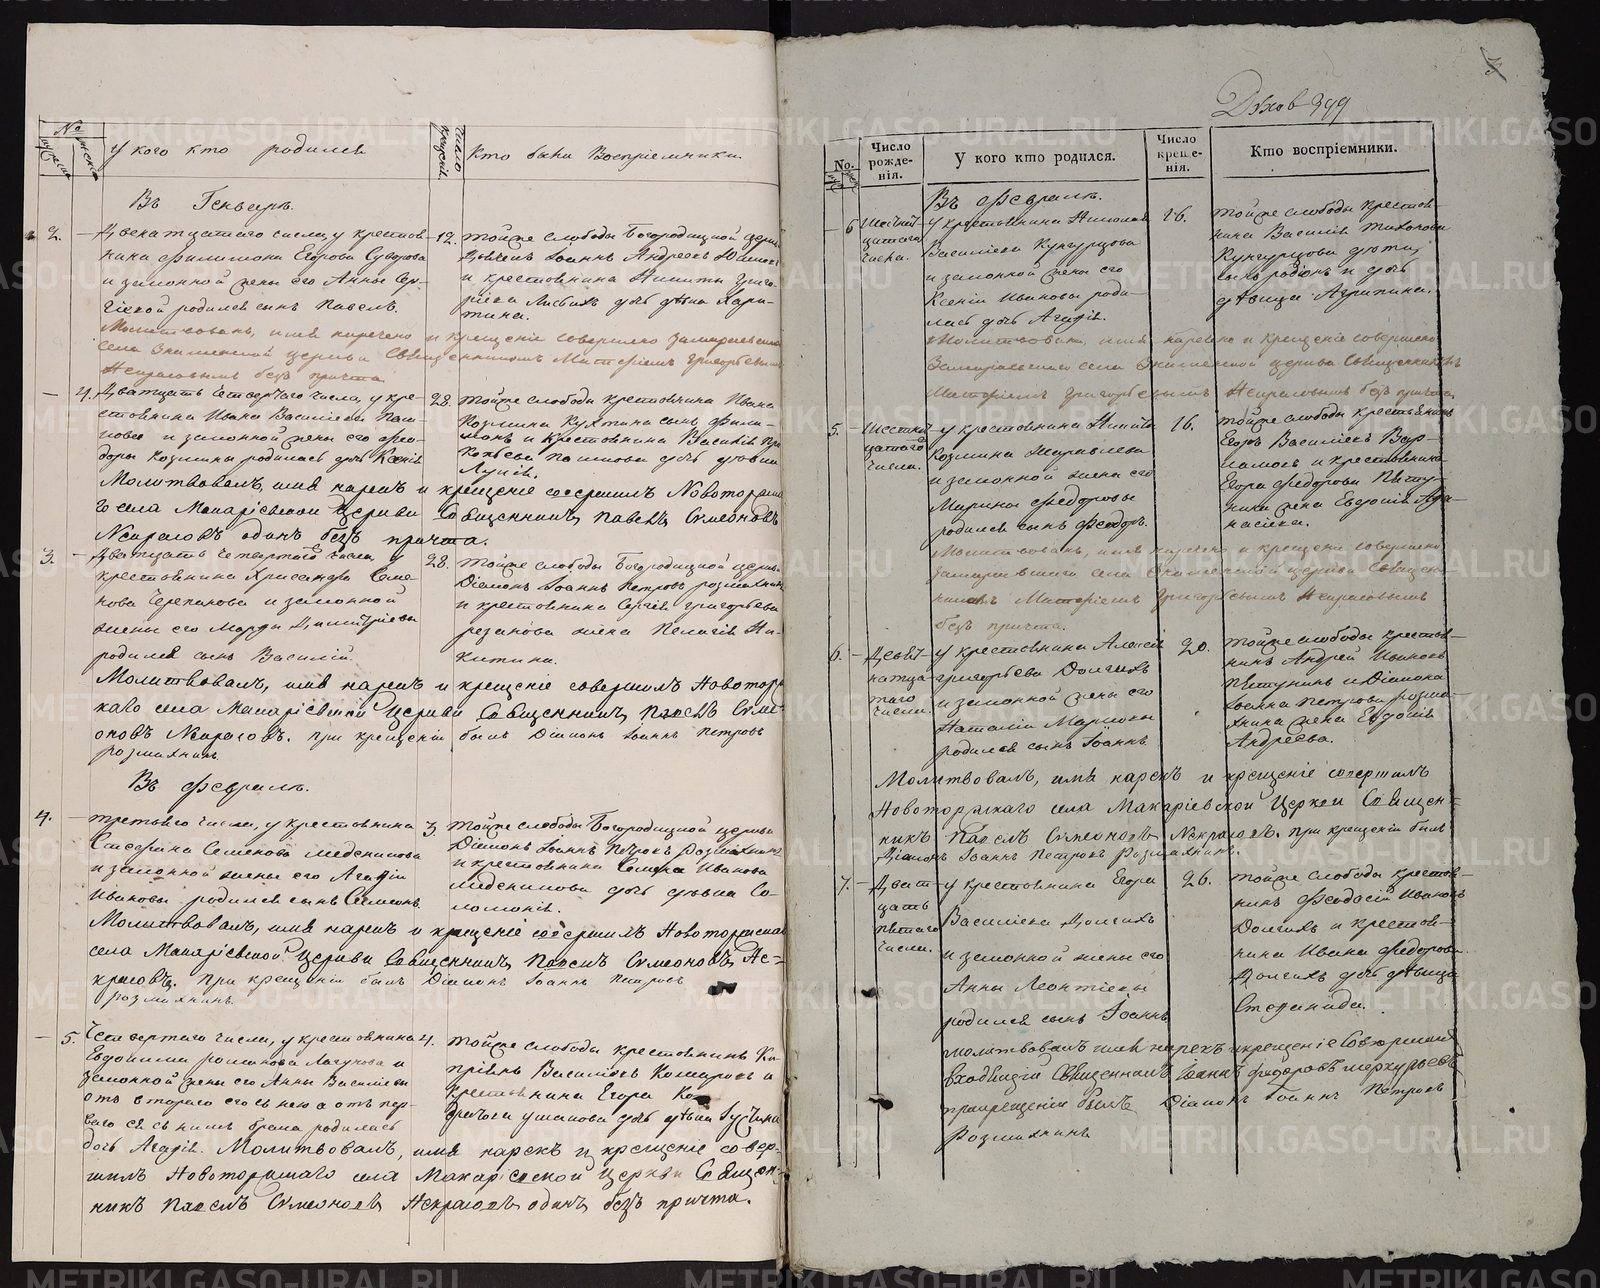 No
У кого кто родился
Число крещенія
Кто были Воспріемники.
Въ Генваръ.
2. Двенатцатаго числа, у крестьян-
нина Филимона Егорова Суворова
и законной жены его Анны Сер-
гіевой родился сынъ Павелъ.
12. тойже слободы Богородицкой церкви
Дьячекъ Іоаннъ Андреевъ
и крестьянина Никиты Григо-
рьева дочь дѣвка Хари-
тина.
Молитвованъ, имя наречено и крещеніе совершено
села Знаменской церкви Священникомъ Матфіемъ Григорьевымъ
Некрасовымъ безъ причта
4. Дватцать четвертаго числа, у кре-
стьянина Ивана Васильева Паш-
кова и законной жены его Фео-
доры Козмины родилась дочь Ксенія
28. тойже слободы крестьянина Ивана
Козмина Кухтина сынъ Фили-
монъ и крестьянина Василія Про-
копьева Пашкова дочь дѣвка
Лукія.
Молитвовалъ, имя нарекъ и крещеніе совершилъ Новоторжска-
го села Макаріевской Церкви Священникъ Павелъ Симеоновъ
Некрасовъ одинъ безъ причта.
3. Дватцать четвертаго числа, у
крестьянина Хрисанфа Семе-
нова Черепанова и законной
жены его Марфы Димитріевы
родился сынъ Василій.
28. тойже слободы Богородицкой церкви
Діаконъ Іоаннъ Петровъ Розмахнинъ
и крестьянина Сергія Григорьева
Резанова жена Пелагія Ни-
китина.
Молитвовалъ, имя нарекъ и крещеніе совершилъ Новоторжс-
каго села Макаріевской Церкви Священникъ Павелъ Симе-
оновъ Некрасовъ. При крещеніи былъ Діаконъ Іоаннъ Петровъ
Розмахнинъ.
Въ Февралѣ.
4. третьяго числа, у крестьянина
Спиридона Семенова Меденикова
и законной жены его Агафіи
Ивановы родился сынъ Семіонъ
3 тойже слободы Богородицкой церкви
Діаконъ Іоаннъ Петровъ Розмахнинъ
и крестьянина Семена Иванова
Меденикова дочь дѣвка Со-
ломонія.
Молитвовалъ, имя нарекъ и крещеніе совершилъ Новоторжскаго
села Макаріевской Церкви Священникъ Павелъ Симеоновъ Не-
красовъ. При крещеніи былъ Діаконъ Іоаннъ Петровъ
Розмахнинъ.
5. Четвертаго числа, у крестьянина
Евдокима Романова Лагунова и
законной жены его Анны Васильевы
отъ втораго его съ нею а отъ пер-
ваго ея съ нимъ брака родилась
дочь Агафія. Молитвовалъ, имя нарекъ и крещеніе совер-
4. тойже слободы крестьянинъ Ки-
пріянъ Васильевъ Комаровъ и
крестьянина Егора
Ушакова дочь дѣвка
шилъ Новоторжскаго села Макаріевской Церкви Священ-
никъ Павелъ Симеоновъ Некрасовъ одинъ безъ причта.
7
Дѣхов 399
No.
Число рожде-нія.
У кого кто родился.
Число креще-нія.
Кто воспріемники.
Въ Февралѣ.
6 Шестнат-
цатаго
числа.
У крестьянина Николая
Васильева Кунгурцова
и законной жены его
Ксеніи Ивановы роди-
лась дочь Агафія.
16. тойже слободы крестьян-
нина Василія Тихонова
Кунгурцова дѣти,
сынъ родіонъ и дочь
дѣвица Агрипина.
Молитвована, имя наречено и крещеніе совершено
села Знаменской церкви Священникомъ
Матфіемъ Григорьевымъ Некрасовымъ безъ причта.
5. Шестнат-
цатаго
числа.
у крестьянина Никиты
Козмина Журавлева
и законной жены его
Марины Федоровы
родился сынъ Феодоръ.
16. тойже слободы крестьянинъ
Егоръ Васильевъ Вар-
лаковъ и крестьянина
Егора Федорова Пѣту-
нина жена Евдокія Афа-
насьева.
Молитвованъ, имя наречено и крещеніе совершено
села Знаменской церкви Священ-
никомъ Матфіемъ Григорьевымъ Некрасовымъ
безъ причта.
6. Девят-
натца-
таго
числа.
у крестьянина Алексѣя
Григорьева Долгихъ
и законной жены его
Наталіи Марковы
родился сынъ Іоаннъ.
20. тойже слободы крестьян-
нинъ Андрей Ивановъ
Пѣтунинъ и Діакона
Іоанна Петрова Розма-
хнина жена Евдокія
Андреева.
Молитвовалъ, имя нарекъ и крещеніе совершилъ
Новоторжскаго села Макаріевской Церкви Священ-
никъ Павелъ Симеоновъ Некрасовъ. При крещеніи былъ
Діаконъ Іоаннъ Петровъ Розмахнинъ.
7. Дват-
цать
пятаго
числа.
у крестьянина Егора
Васильева Долгихъ
и законной жены его
Анны Леонтіевы
родился сынъ Іоаннъ
26. тойже слободы крестьян-
нинъ Феодосій Ивановъ
Долгихъ и крестьян-
нина Ивана Федорова
Долгихъ дочь дѣвица
Степанида.
молитвовалъ имя нарекъ и крещеніе Совершилъ
Священникъ Іоаннъ Федоровъ Меркурьевъ
при крещеніи былъ Діаконъ Іоаннъ Петровъ
Розмахнинъ
METRIKI.GASO-URAL.RU